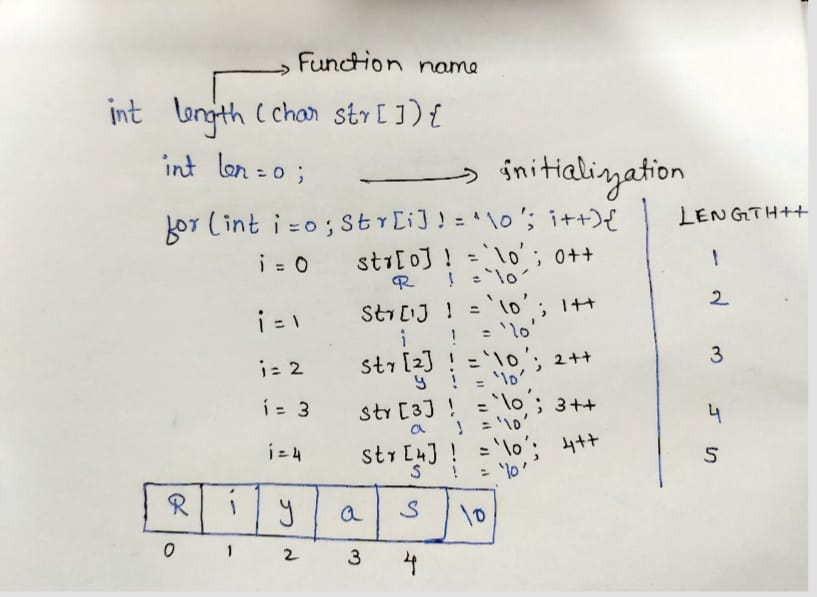 Function name
int length (char str[]){
int len = 0 ; initialization
for (int i = 0 ; str[i] ! = '\0'; i++){ LENGTH++
i = 0 str[0] ! = '\0'; 0++ 1
R ! = '\0'
i = 1 str[1] ! = '\0'; 1++ 2
i ! = '\0'
i = 2 str[2] ! = '\0'; 2++ 3
y ! = '\0'
i = 3 str[3] ! = '\0'; 3++ 4
a ! = '\0'
i = 4 str[4] ! = '\0'; 4++ 5
s ! = '\0'
R i y a s \0
0 1 2 3 4